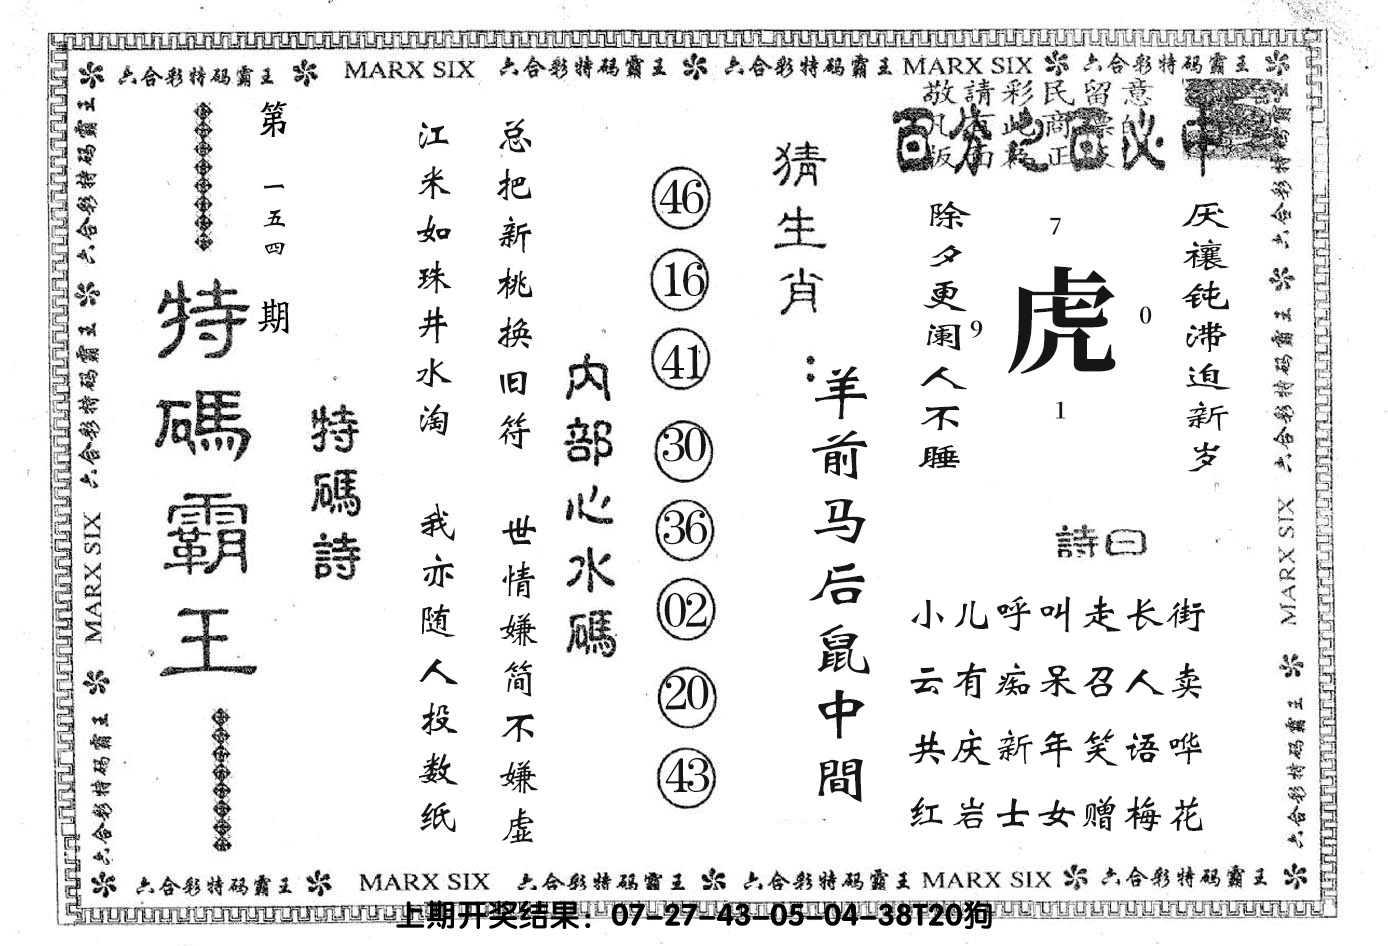 六合彩特码霸王 MARX SIX 六合彩特码霸王 六合彩特码霸王 MARX SIX 六合彩特码霸王
敬請彩民留意
百分之百必中
厌禳钝滞迫新岁
除夕更阑人不睡
7
9
虎
0
1
詩曰
小儿呼叫走长街
云有痴呆召人卖
共庆新年笑语哗
红岩士女赠梅花
猜生肖：
羊前马后鼠中間
46
16
41
30
36
02
20
43
内部心水碼
总把新桃换旧符
世情嫌简不嫌虚
江米如珠井水淘
我亦随人投数纸
特碼詩
第一五四期
特碼霸王
六合彩特码霸王 六合彩特码霸王 MARX SIX 六合彩特码霸王
六合彩特码霸王 六合彩特码霸王 MARX SIX 六合彩特码霸王
六合彩特码霸王 MARX SIX 六合彩特码霸王 六合彩特码霸王 MARX SIX 六合彩特码霸王
上期开奖结果：07-27-43-05-04-38T20狗